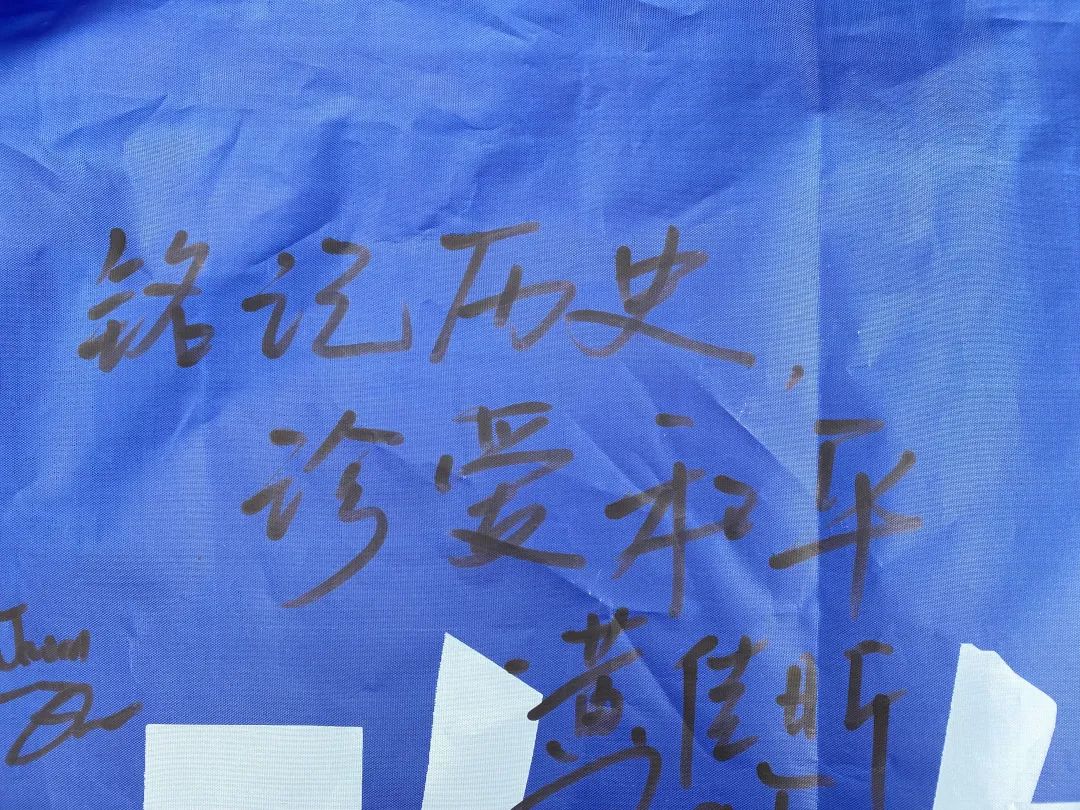 铭记历史,
珍爱和平
黄佳昕